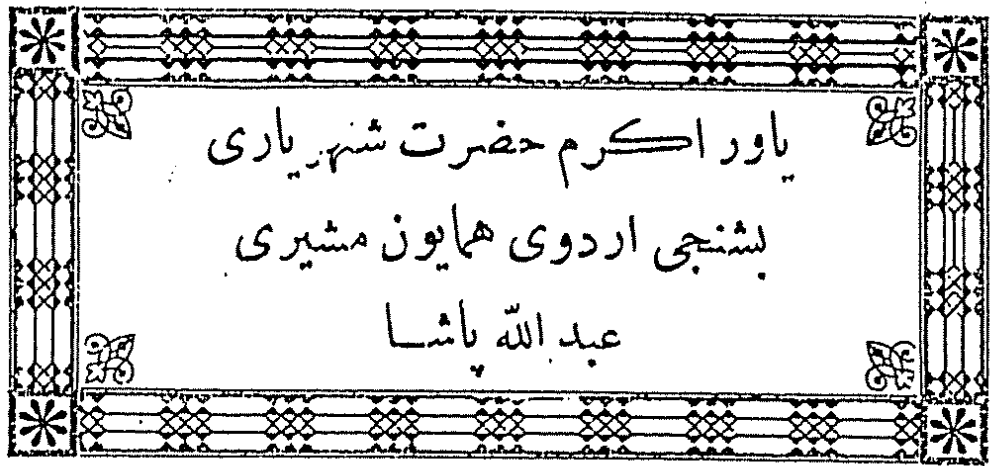 یاور اکرم حضرت شهریاری
بشنجی اردوی همایون مشیری
عبد الله پاشا